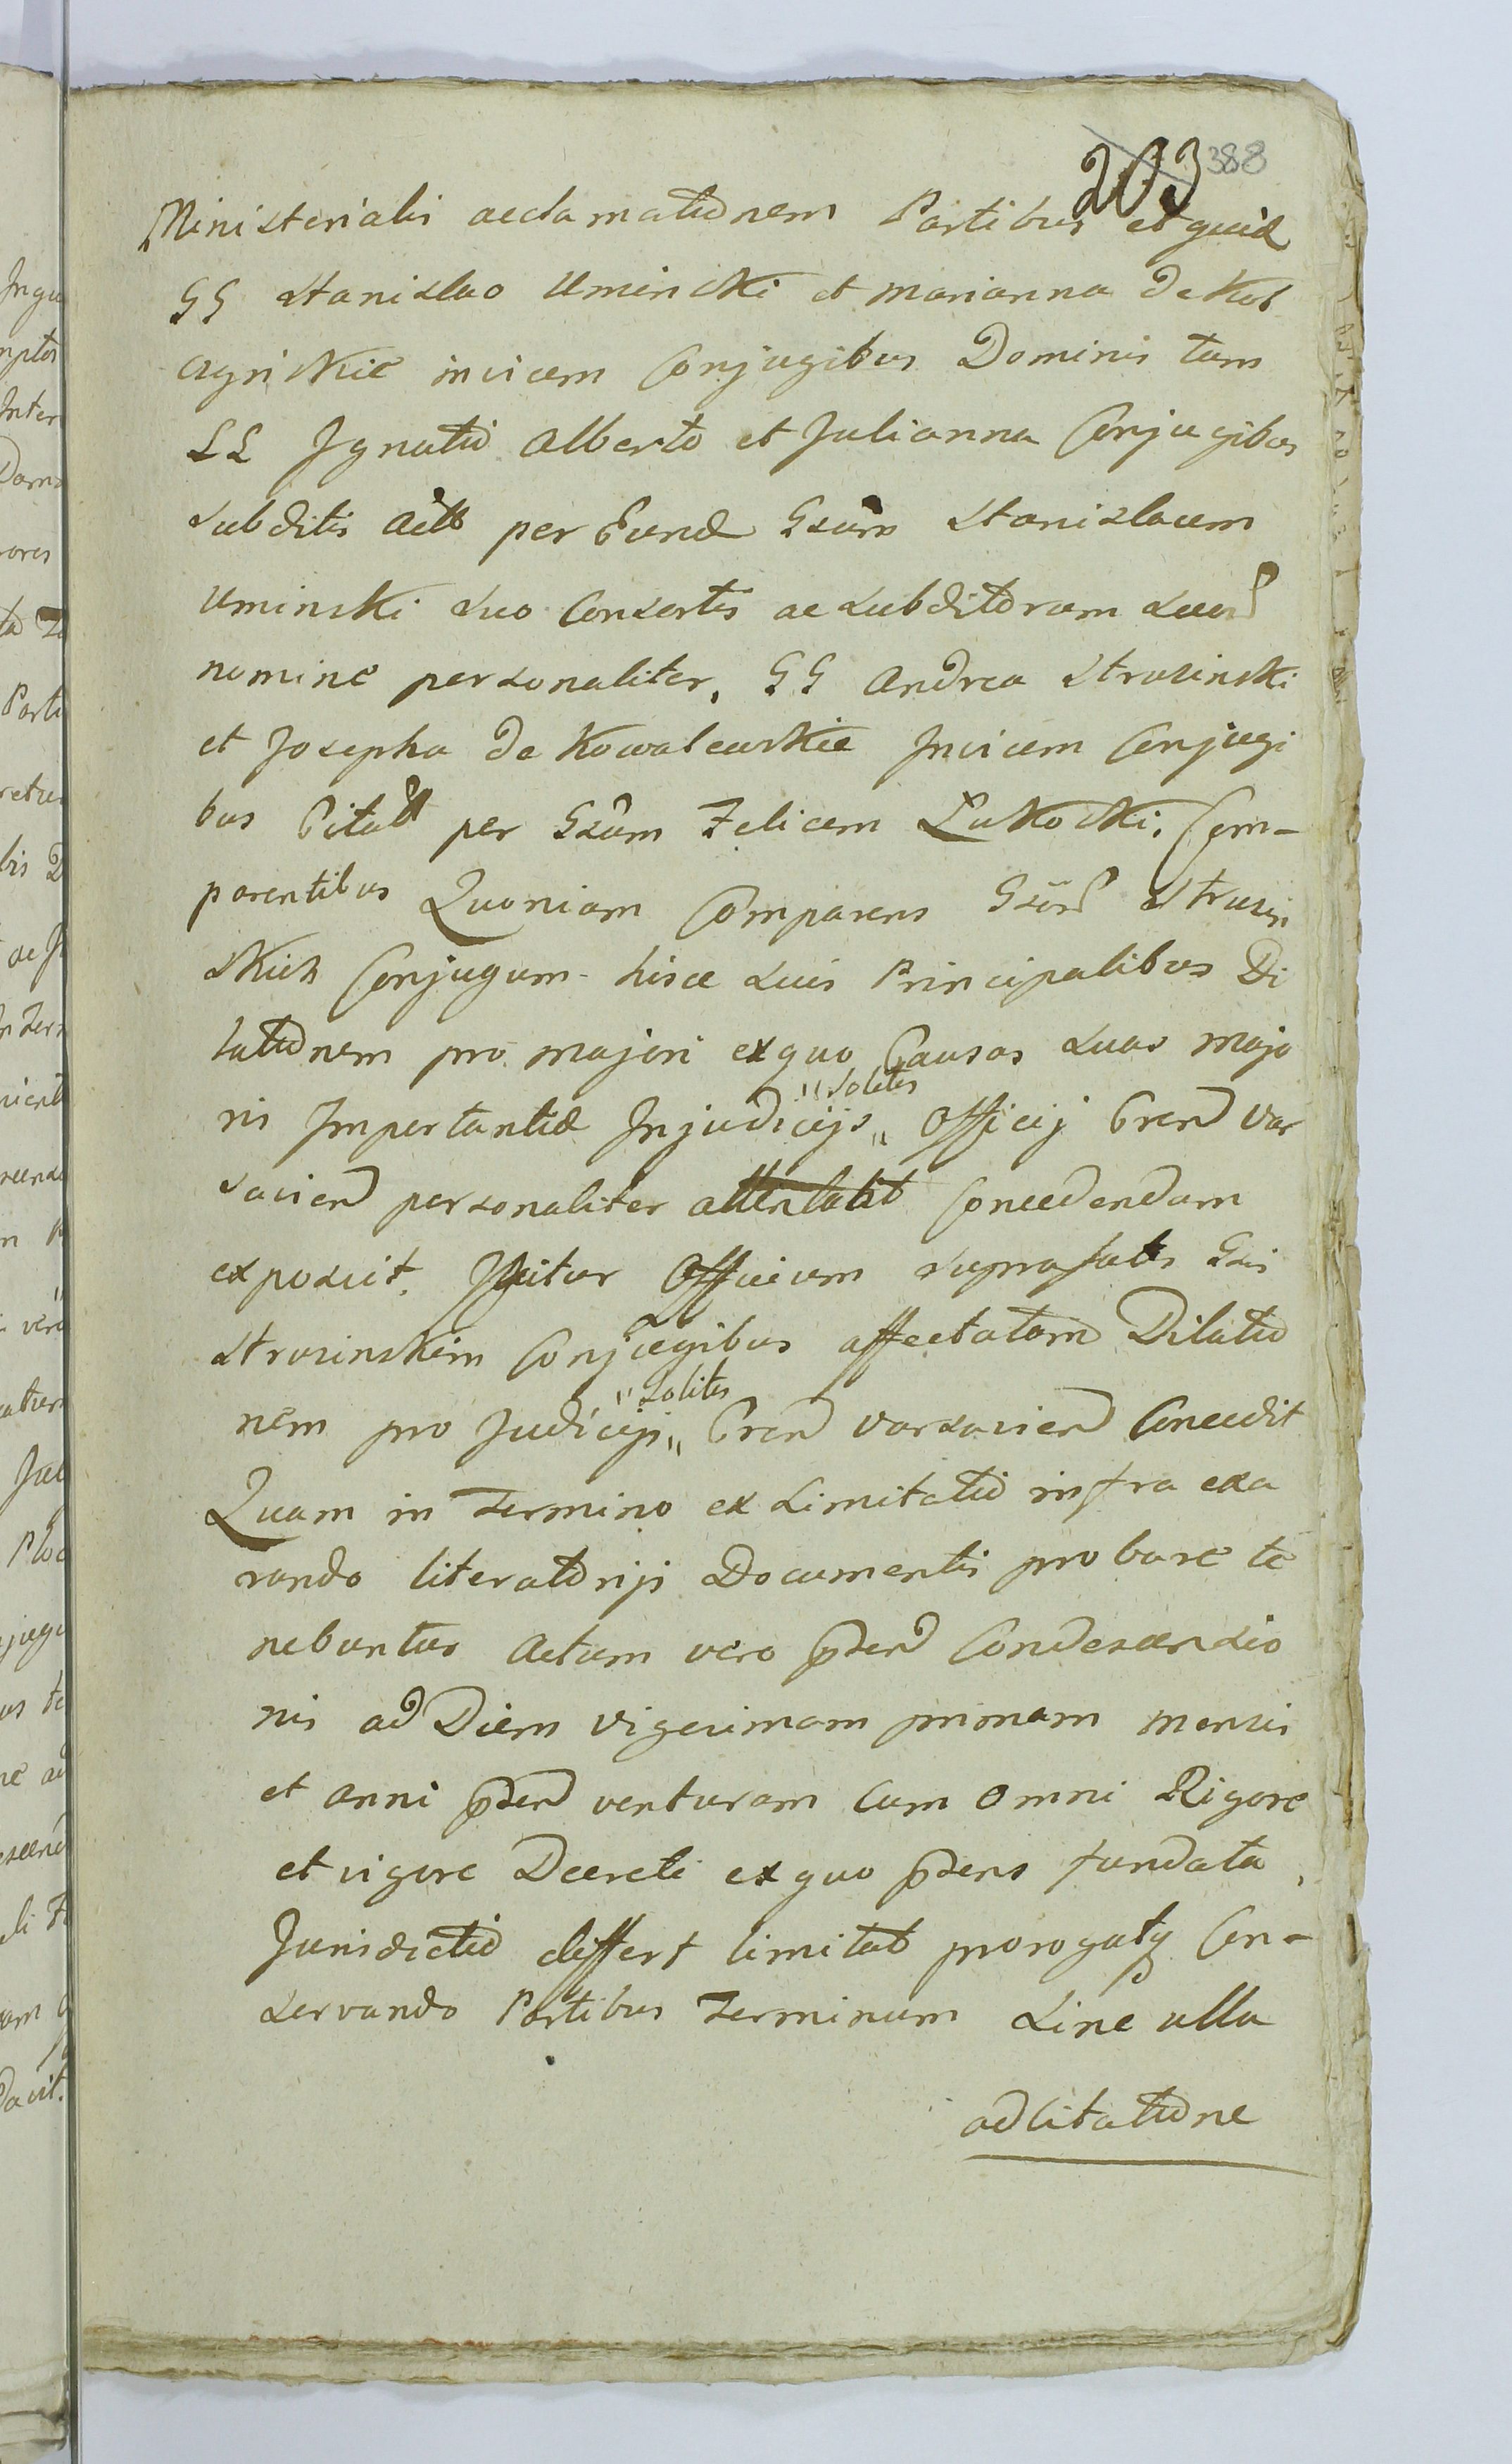 203 388
Ministerialis acclamationem Partibus et quid
GG Stanislao Uminski et Marianna de Kos
skie invicem Conjugibus Dominis tum
LL Ignatio Alberto et Julianna Conjugibus
subditis Actb per Eund Gsum Stanislaum
Uminski suo Consortis ac subditorum suor
nomine personaliter, GG Andrea Strusinski
et Josepha de Kowalewskie Invicem Conjugi
bus Citatt per Gsum Felicem Lukoski. Com-
parentibus Quoniam Comparens Gsor Strusin
skich Conjugum hisce suis Principalibus Di
lationem pro majori ex quo Causas suas majo
ris Importantiæ In judicijs " solitis " Officij Cren Var
savien personaliter attentabit Concedendam
exposuit. Igitur Officium suprafatis Gsis
Strusinskim Conjugibus affectatam Dilatio
nem pro Judicijs " solitis " Cren Varsavien Concedit
Quam in Termino ex Limitatio infra exa
rando literatorijs Documentis probare te
nebuntur Actum vero psen Condescensio
nis ad Diem vigesimam primam mensis
et anni psen venturam Cum Omni Rigore
et vigore Decreti ex quo psens fundata
Jurisdictio differt limitat prorogatq Con-
servando Partibus Terminum sine ulla
adcitatione